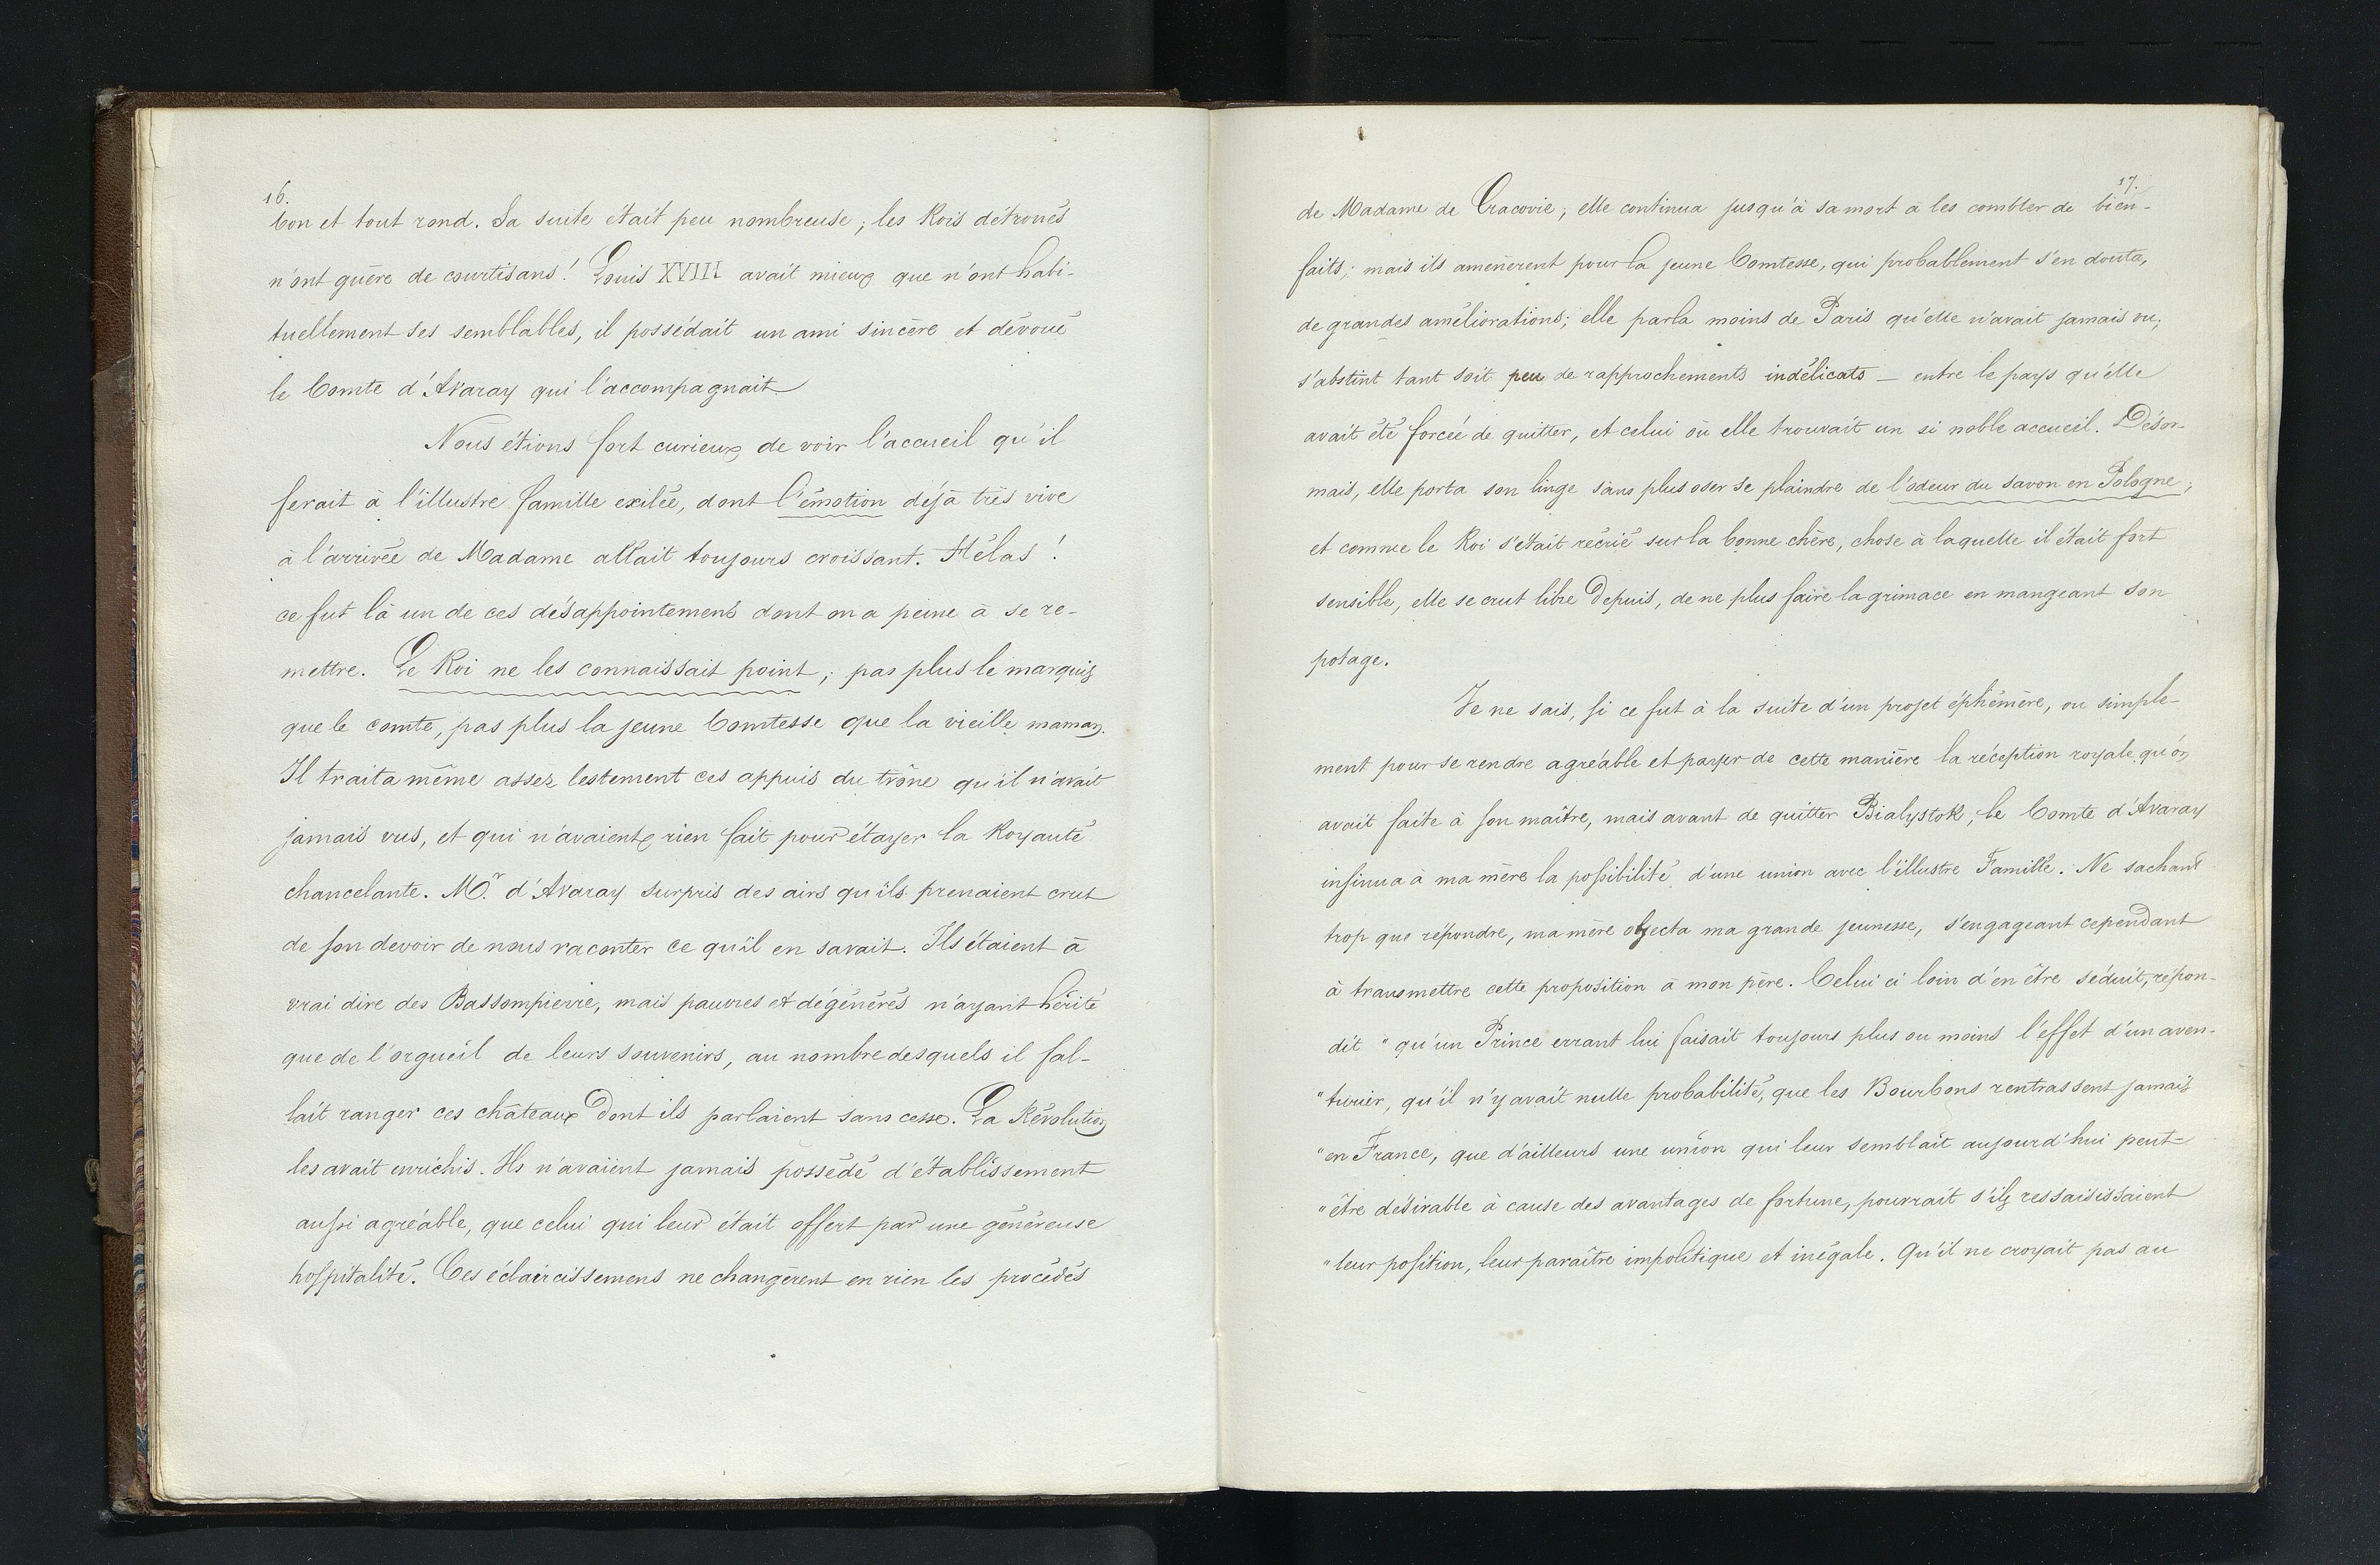 16.
bon et tout rond. Sa suite était peu nombreuse; les Rois détronés
n'ont guère de courtisans! Louis XVIII avait mieux que n'ont habi-
tuellement ses semblables, il possédait un ami sincère et dévoué
le Comte d'Avaray qui l'accompagnait.
Nous étions fort curieux de voir l'accueil qu'il
ferait à l'illustre famille exilée, dont l'émotion déjà très vive
à l'arrivée de Madame allait toujours croissant. Hélas!
ce fut là un de ces désappointements dont on a peine à se re-
mettre. Le Roi ne les connaissait point; pas plus le marquis
que le comte, pas plus la jeune Comtesse que la vieille maman.
Il traita même assez lestement ces appuis du trône qu'il n'avait
jamais vus, et qui n'avaient rien fait pour étayer la Royauté
chancelante. Mr. d'Avaray surpris des airs qu'ils prenaient crut
de son devoir de nous raconter ce qu'il en savait. Ils étaient à
vrai dire des Bassompierre, mais pauvres et dégénérés n'ayant hérité
que de l'orgueil de leurs souvenirs, au nombre desquels il fal-
lait ranger ces châteaux dont ils parlaient sans cesse. La Révolution
les avait enrichis. Ils n'avaient jamais possédé d'établissement
aussi agréable, que celui qui leur était offert par une généreuse
hospitalité. Ces éclaircissemens ne changèrent en rien les procédés
17.
de Madame de Cracovie; elle continua jusqu'à sa mort à les combler de bien-
faits; mais ils amenèrent pour la jeune Comtesse, qui probablement s'en douta,
de grandes améliorations; elle parla moins de Paris qu'elle n'avait jamais vu;
s'abstint tant soit peu de rapprochements indélicats — entre le pays qu'elle
avait été forcée de quitter, et celui où elle trouvait un si noble accueil. Désor-
mais, elle porta son linge sans plus oser se plaindre de l'odeur du savon en Pologne;
et comme le Roi s'était récrié sur la bonne chère, chose à laquelle il était fort
sensible, elle se crut libre depuis, de ne plus faire la grimace en mangeant son
potage.
Je ne sais, si ce fut à la suite d'un projet éphémère, ou simple-
ment pour se rendre agréable et payer de cette manière la réception royale qu'on
avait faite à son maître, mais avant de quitter Bialystok, le Comte d'Avaray
insinua à ma mère la possibilité d'une union avec l'illustre Famille. Ne sachant
trop que répondre, ma mère objecta ma grande jeunesse, s'engageant cependant
à transmettre cette proposition à mon père. Celui ci loin d'en être séduit, répon-
dit "qu'un Prince errant lui faisait toujours plus ou moins l'effet d'un aven-
"turier, qu'il n'y avait nulle probabilité, que les Bourbons rentrassent jamais
"en France, que d'ailleurs une union qui leur semblait aujourd'hui peut-
"être désirable à cause des avantages de fortune, pourrait s'ils ressaisissaient
"leur position, leur paraître impolitique et inégale. Qu'il ne croyait pas au